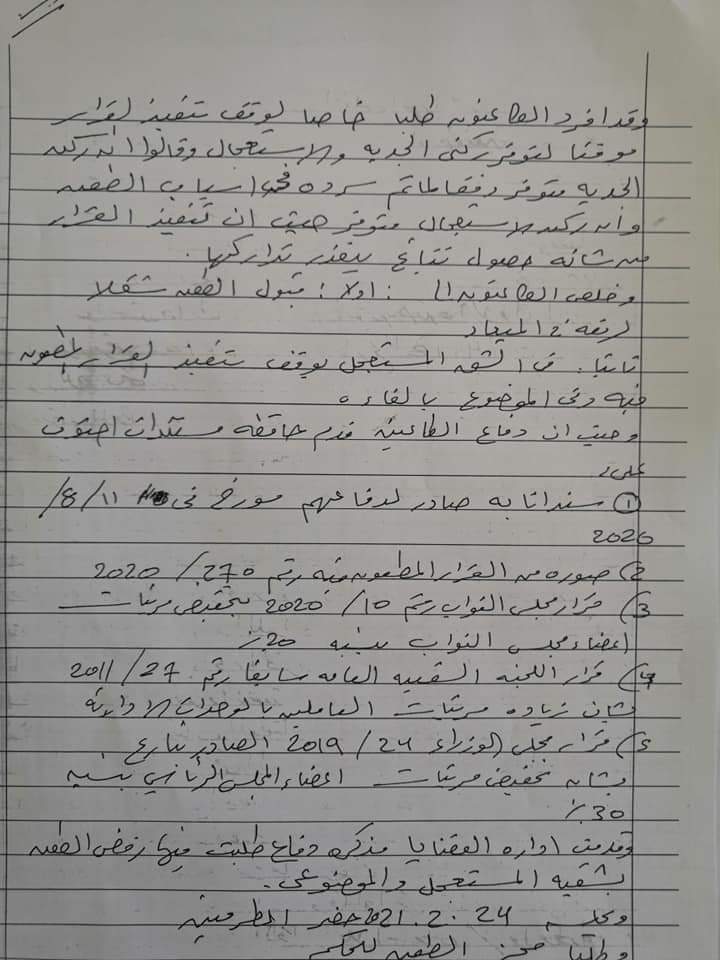 وقد افرد الطاعنون طلبا خاصا لوقف تنفيذ القرار
موقتا لتوفر ركنى الجديه والاستعجال وقالوا ان ركن
الجديه متوفر وفقا لما تم سرده في اسباب الطعن
وان ركن الاستعجال متوفر حيث ان تنفيذ القرار
من شانه حصول نتائج يتعذر تداركها.
وخلص الطاعنون الى : اولا : قبول الطعن شكلا
لرفعه في الميعاد
ثانيا : فى الشق المستعجل بوقف تنفيذ القرار المطعون
فيه وفى الموضوع بالغاءه
وحيث ان دفاع الطاعنين قدم حافظه مستندات احتوت
على :
1) سند انابه صادر لدفاعهم مورخ فى 11/8/
2020
2) صوره من القرار المطعون فيه رقم 270/2020
3) قرار مجلس النواب رقم 10/2020 بتخفيض مرتبات
اعضاء مجلس النواب بنسبه 20٪
4) قرار اللجنه الشعبيه العامه سابقا رقم 27/2011
بشان زياده مرتبات العاملين بالوحدات الاداريه
5) قرار مجلس الوزراء 24/2019 الصادر بتاريخ
بشان تخفيض مرتبات اعضاء المجلس الرئاسي بنسبه
30٪
وقدمت اداره القضايا مذكره دفاع طلبت فيها رفض الطعن
بشقيه المستعجل والموضوعى.
24.2.2021 حضر الطرفين
الطعن للحكم